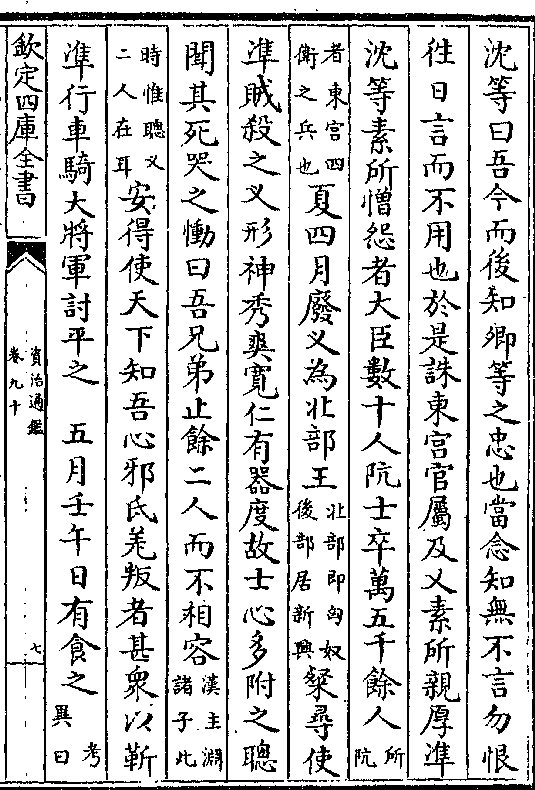 沈等曰吾今而後知卿等之忠也當念知無不言勿恨
往日言而不用也於是誅東宮官屬及乂素所親厚準
沈等素所憎怨者大臣數十人阬士卒萬五千餘人所阬
者東宮四衛之兵也夏四月廢乂為北部王北部即匈奴後部居新興粲尋使
準賊殺之乂形神秀爽寛仁有器度故士心多附之聰
聞其死哭之慟曰吾兄弟止餘二人而不相容漢主淵諸子此
時惟聰乂二人在耳安得使天下知吾心邪氐羌叛者甚衆以靳
準行車騎大將軍討平之　五月壬午日有食之考異曰
欽定四庫全書
資治通鑑
卷九十
七